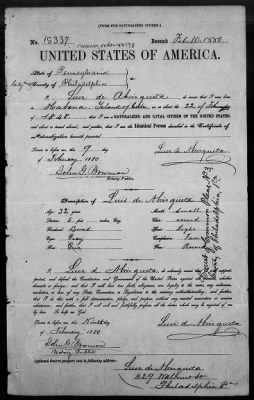 [FORM FOR NATURALIZED CITIZEN.]
No. 15337
Issued Feb. 10. 1880
UNITED STATES OF AMERICA.
State of Pennsylvania
County of Philadelphia
I, Luis de Abrisqueta, do swear that I was born in
Habana Island of Cuba on or about the 22 of
; that I am a NATURALIZED AND LOYAL CITIZEN OF THE UNITED STATES, and about
to travel abroad; and further, that I am the Identical Person described in the Certificate of
Naturalization herewith presented.
Sworn to before me, this 9 day
of February 1880
John G. Bowman
Notary Public.
Luis de Abrisqueta
Description of Luis de Abrisqueta
Age: 32 years
Mouth: small
Stature: 5 feet inches, Eng.
Chin: round
Forehead: Broad
Hair: Light
Eyes: Gray
Complexion: Fair
Nose:
Face: Round
Court of Common Pleas No. 3
County of Philadelphia, Pa.
I, Luis de Abrisqueta, do solemnly swear that I will support, protect,
and defend the Constitution and Government of the United States against all enemies, whether
domestic or foreign; and that I will bear true faith, allegiance, and loyalty to the same, any ordinance,
resolution, or law of any State, Convention, or Legislature to the contrary notwithstanding; and further,
that I do this with a full determination, pledge, and purpose, without any mental reservation or evasion
whatsoever; and further, that I will well and faithfully perform all the duties which may be required of me
by law. So help me God.
Sworn to before me, this Ninth day
of February 1880
John G. Bowman
Notary Public
Luis de Abrisqueta
Applicant desires passport sent to following address:
Luis de Abrisqueta
Walnut St.
Philadelphia Pa